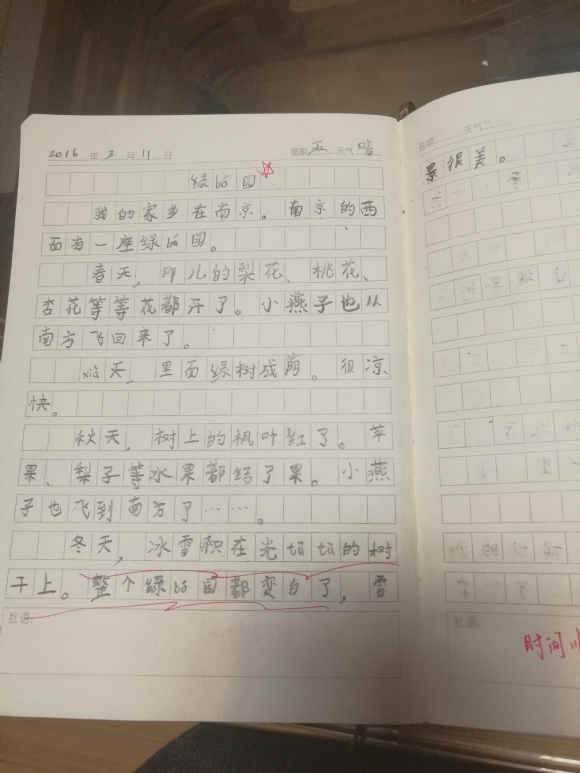 2016 年 3 月 11 日 星期 五 天气 晴
绿bó园
我的家乡在南京。南京的西
面有一座绿bó园。
春天，那儿的梨花、桃花、
杏花等等花都开了。小燕子也从
南方飞回来了。
xià天，里面绿树成荫。很凉
快。
秋天，树上的枫叶红了。苹
果、梨子等水果都结了果。小燕
子也飞到南方了……。
冬天，冰雪积在光tūtū的树
干上。整个绿bó园都变白了，雪
批语：
天气
景很美。
批语：
时间